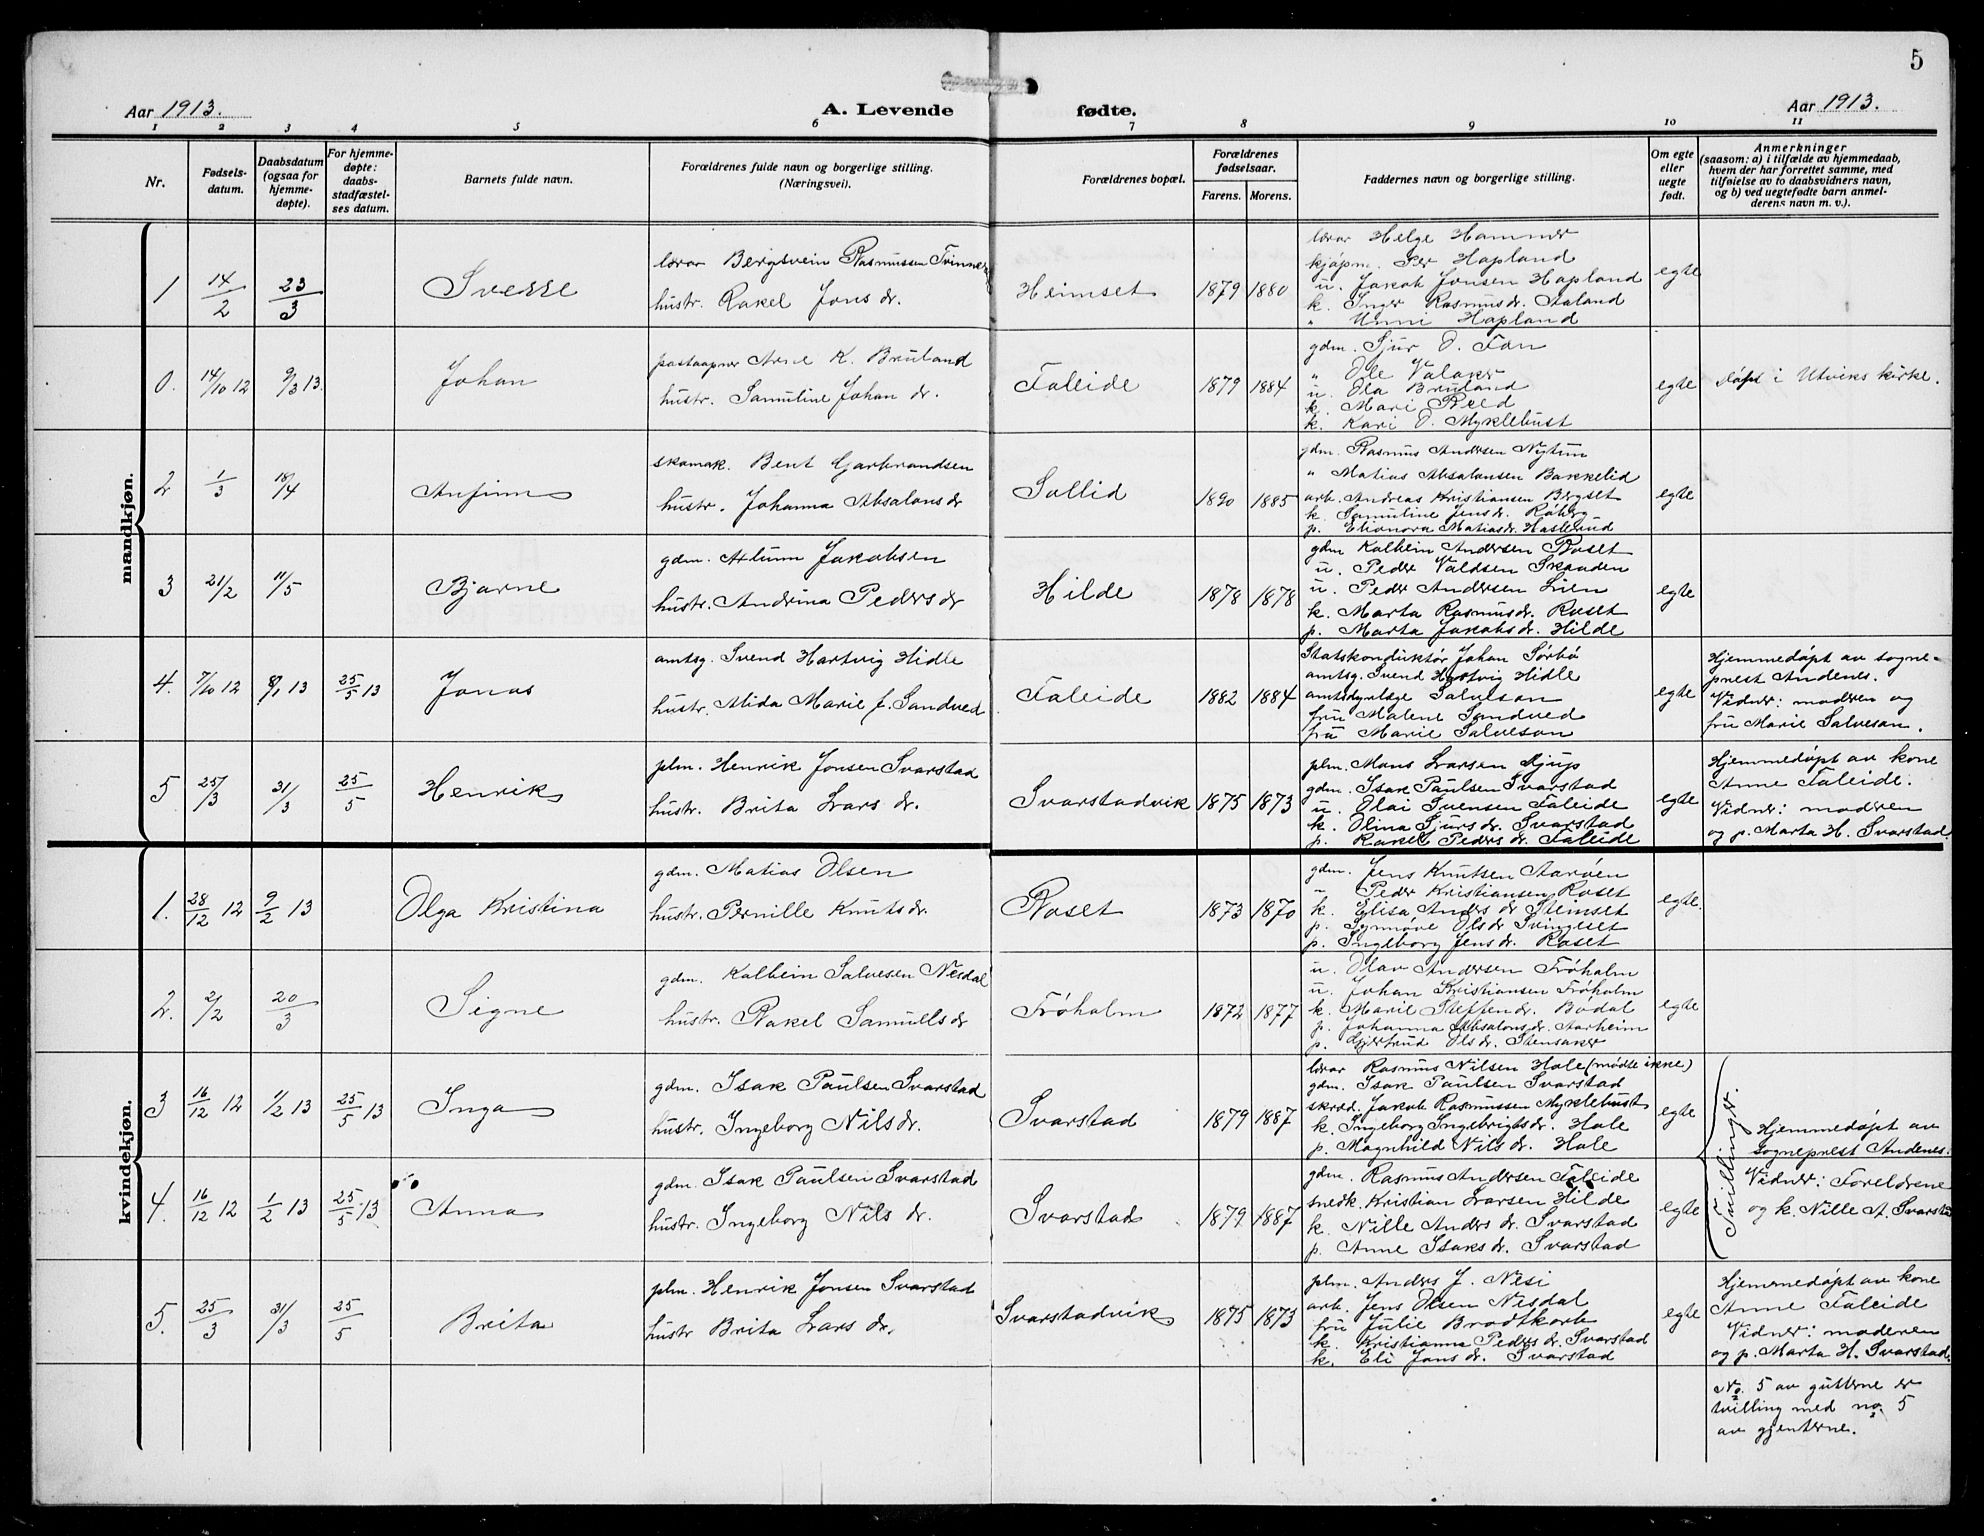 5
Aar 1913.
A. Levende fødte.
Aar 1913.
1 2 3 4 5 6 7 8 9 10 11
Nr.
Fødsels-
datum.
Daabsdatum
(ogsaa for
hjemme-
døpte).
For hjemme-
døpte:
daabs-
stadfæstel-
ses datum.
Barnets fulde navn.
Forældrenes fulde navn og borgerlige stilling.
(Næringsvei).
Forældrenes bopæl.
Forældrenes
fødselsaar.
Farens. Morens.
Faddernes navn og borgerlige stilling.
Om egte
eller
uegte
født.
Anmerkninger
(saasom: a) i tilfælde av hjemmedaab,
hvem der har forrettet samme, med
tilføielse av to daabsvidners navn,
og b) ved uegtefødte barn anmel-
derens navn m. v.).
mandkjøn.
1 14/2 23/3 Sverre
lærar Bergsvein Rasmussen Tvinner
hustr. Rakel Jons dr.
Heimset 1879 1880
lærar Helge Hammer
kjøpm. Per Hapland
u. Jakob Jonsen Hapland
k. Inger Rasmusdr. Staland
" Unni Hapland
egte
0. 14/10 12 9/3 13. Johan
postaapner Arne K. Bruland
hustr. Samuline Johan dr.
Faleide 1879 1884
gdm. Sjur O. Fon
" Ole Valaker
u. Ola Bruland
k. Mari Reed
k. Kari O. Myklebust
egte
døpt i Utviks kirke.
2 1/3 18/4 Anfinn
skomak. Bent Garbrandsen
hustr. Johanna Absalons dr
Sollid 1890 1885
gdm. Rasmus Andersen Nytun
" Matias Absalonsen Bakkelid
arb. Andreas Kristiansen Bergset
k. Samuline Jensdr. Røberg
p. Elionora Matiasdr. Haslerud
egte
3 21/2 11/5 Bjarne
gdm. Atlum Jakobsen
hustr. Andrina Peders dr
Hilde 1878 1878
gdm Kolbein Andersen Roset
u. Peder Valdsen Skaaden
u. Peder Andersen Lien
k. Marta Rasmusdr. Roset
p. Marta Jakobsdr. Hilde
egte
4. 7/10 12 8/1 13 25/5 13 Jonas
amtsg. Svend Hartvig Hidle
hustr. Alida Marie f. Sandved
Faleide 1882 1884
Statskonduktør Johan Sørbø
amtsg. Svend Hartvig Hidle
amtsdyrlæge Salveson
fru Malene Sandved
fru Marie Salveson
egte
Hjemmedøpt av sogne-
prest Andenes.
Vidner: moderen og
fru Marie Salveson.
5 25/3 31/3 25/5 Henrik
plm. Henrik Jonsen Svarstad
hustr. Brita Lars dr.
Svarstadvik 1875 1873
plm. Mons Larsen Djup
gdm. Isak Paulsen Svarstad
u. Olai Svensen Faleide
k. Olina Sjurs dr. Svarstad
p. Rakel Peders dr. Faleide
egte
Hjemmedøpt av kone
Anne Faleide.
Vidner: moderen
og p. Marta H. Svarstad.
kvindekjøn.
1. 28/12 12 9/2 13 Olga Kristina
gdm. Matias Olsen
hustr. Pernille Knuts dr.
Roset 1873 1870
gdm. Jens Knutsen Aarøen
u. Peder Kristiansen Roset
k. Elisa Anders dr Steinset
p. Synnøve Ols dr Svingeset
p. Ingeborg Jens dr. Roset
egte.
2. 2/2 20/3 Signe
gdm. Kolbein Salvesen Nesdal
hustr. Rakel Samuels dr
Frøholm 1872 1877
u. Olav Andersen Frøholm
u. Johan Kristiansen Frøholm
k. Marie Steffendr. Bødal
p. Johanna Absalonsdr. Aarheim
p. Gjertrud Ols dr. Stensaker
egte
3 16/12 12 1/2 13 25/5 13 Inga
gdm. Isak Paulsen Svarstad
hustr. Ingeborg Nils dr.
Svarstad 1879 1887
lærar Rasmus Nilsen Hole (mødte ikke)
gdm. Isak Paulsen Svarstad
skræd. Jakob Rasmussen Myklebust
k. Ingeborg Ingebrigtsdr. Hole
p. Magnhild Nils dr. Hole
egte
Tvillinger.
Hjemmedøpt av
sogneprest Andenes.
Vidner: Foreldrene
og k. Nille A. Svarstad
4. 16/12 12 1/2 13 25/5 13 Anna
gdm. Isak Paulsen Svarstad
hustr. Ingeborg Nils dr.
Svarstad 1879 1887
gdm. Rasmus Andersen Faleide
snedk. Kristian Larsen Hilde
k. Nille Anders dr. Svarstad
p. Anne Isaks dr. Svarstad
egte
5. 25/3 31/3 25/5 Brita
plm. Henrik Jonsen Svarstad
hustr Brita Lars dr.
Svarstadvik 1875 1873
plm. Anders J. Nesi
arb. Jens Olsen Nesdal
fru Julie Brodtkorb
k. Kristianna Peders dr. Svarstad
k. Eli Jons dr. Svarstad
egte
Hjemmedøpt av kone
Anne Faleide
Vidner: moderen
og p. Marta H. Svarstad.
No. 5 av gutterne er
tvilling med no. 5
av gjenterne.